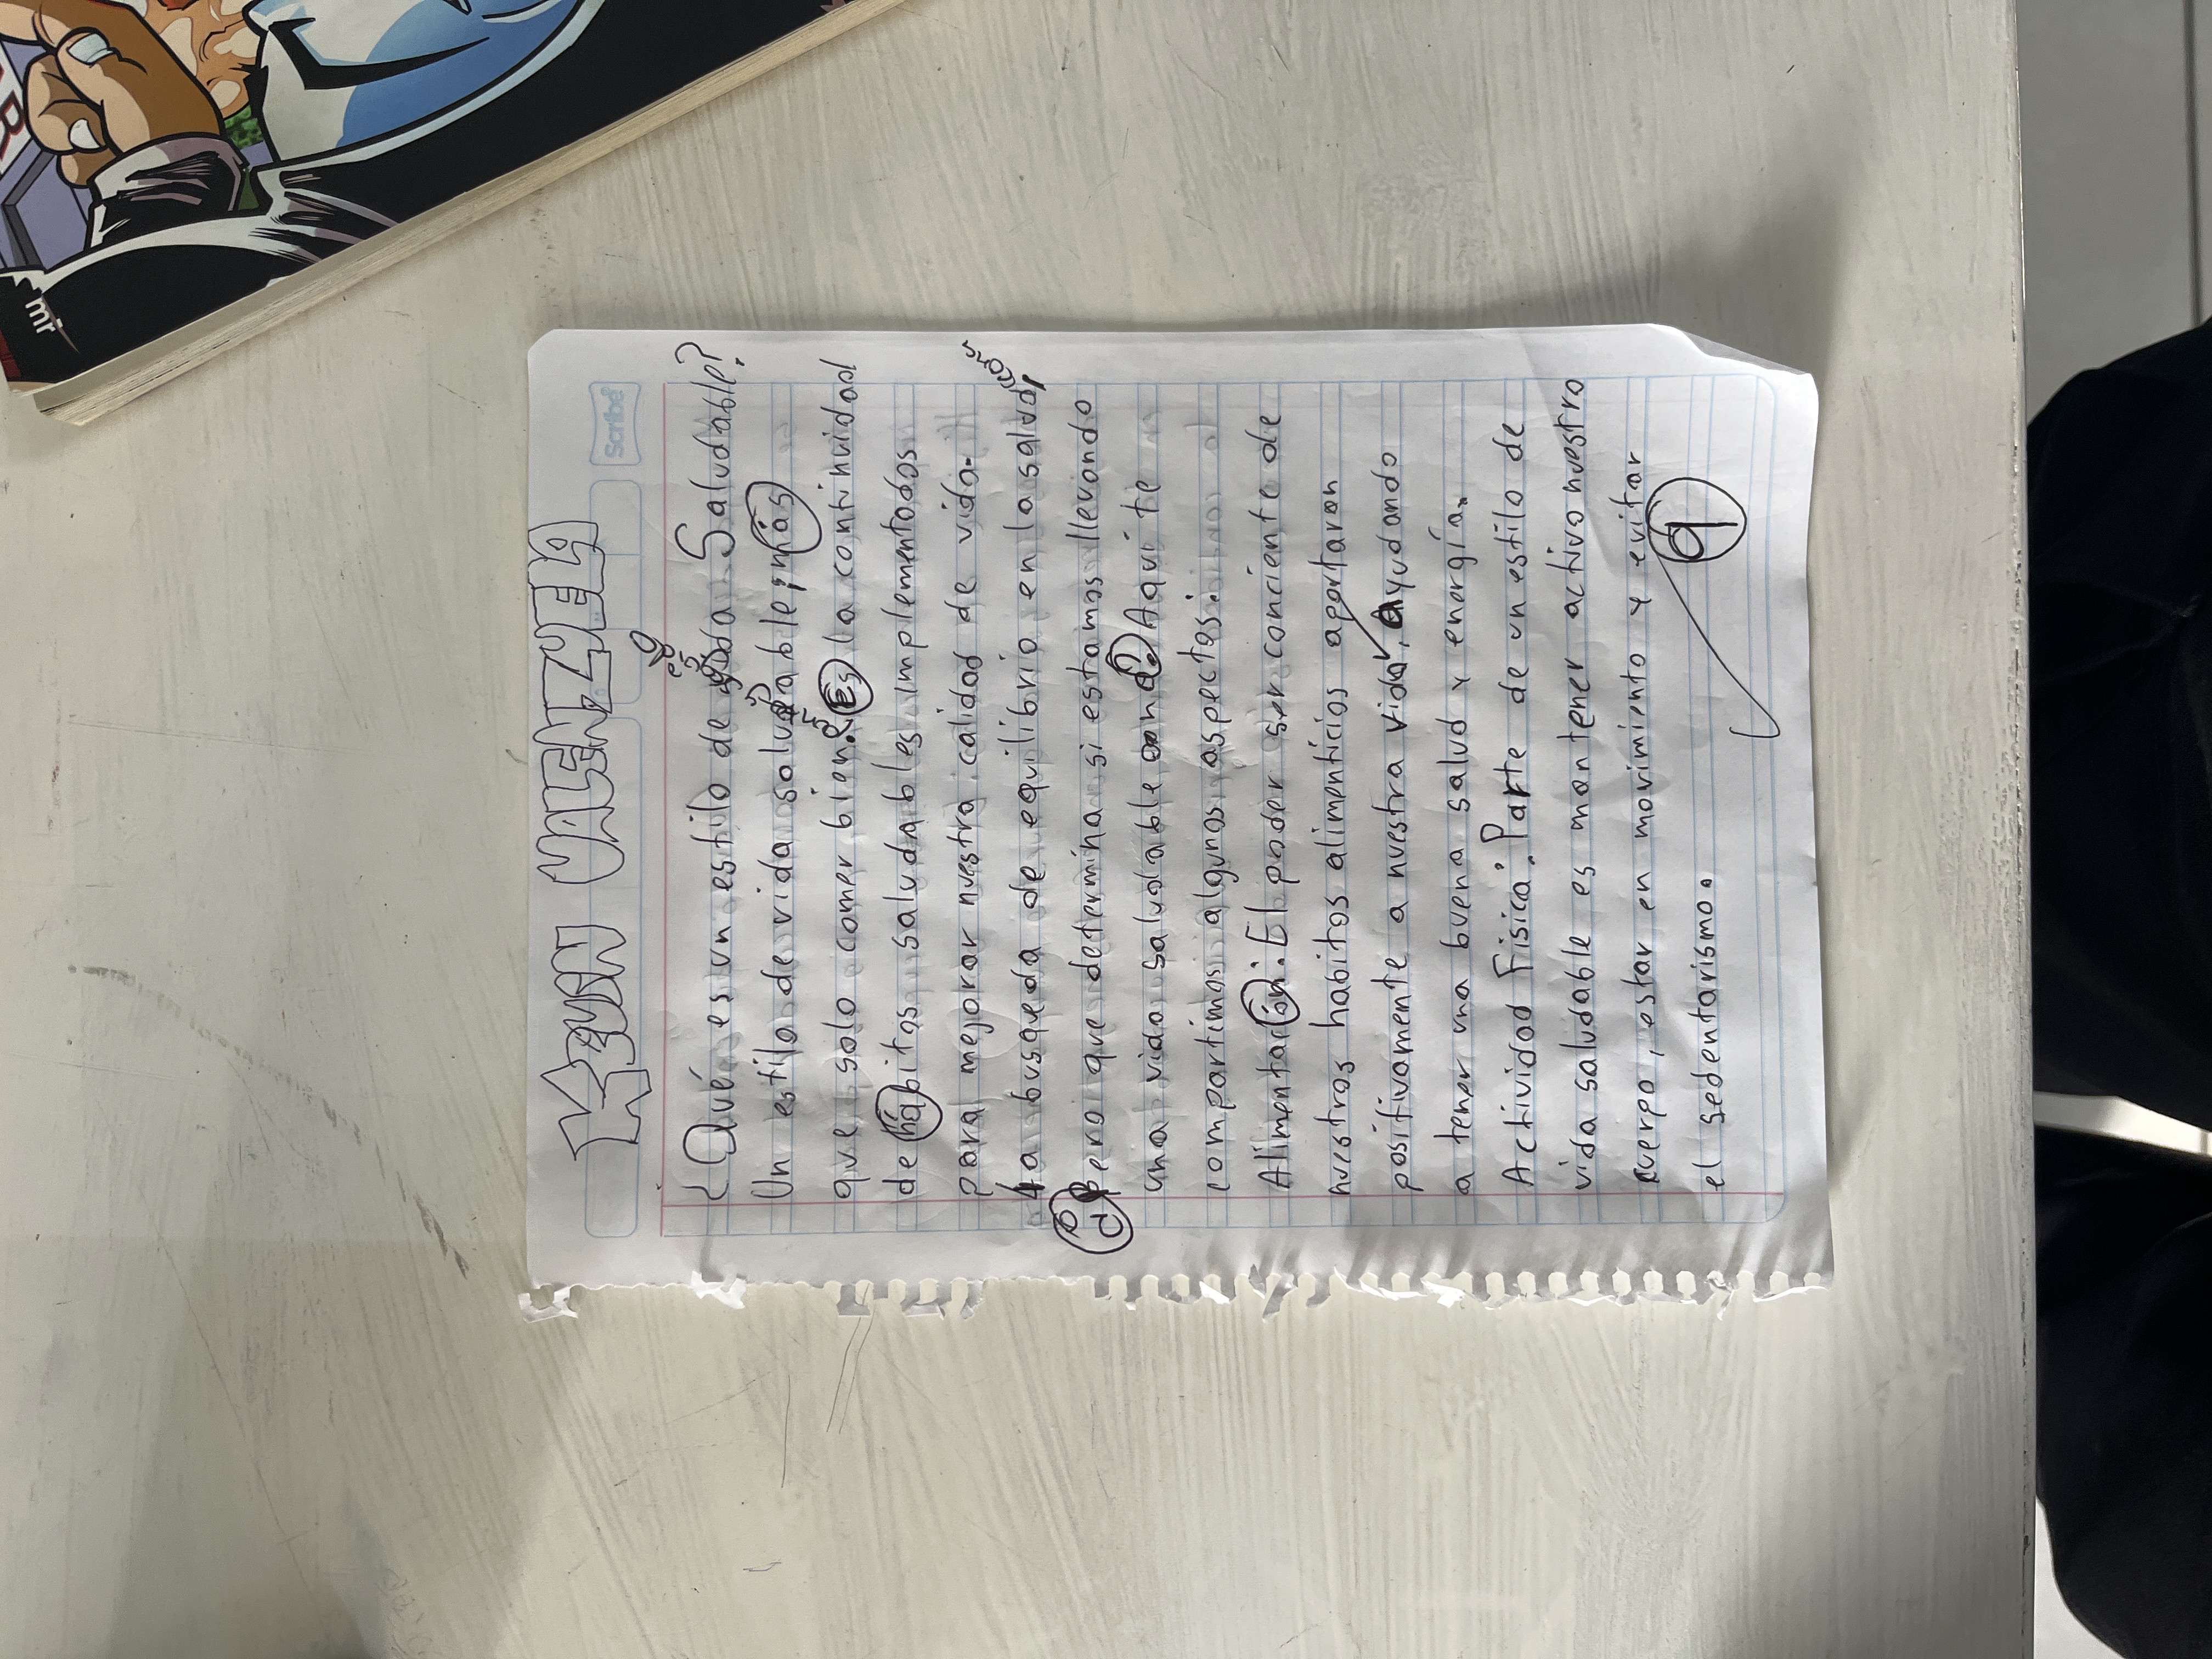 mr
Scribe
VALENZUE
¿Qué es un estilo de vida Saludable?
Un estilo de vida saludable, más
que solo comer bien. Es la continuidad
de hábitos saludables implementados
para mejorar nuestra calidad de vida.
La busqueda de equilibrio en la salud,
¿Pero que determina si estamos llevando
una vida saludable o no? Aqui te
compartimos algunos aspectos:
Alimentación: El poder ser conciente de
nuestros habitos alimenticios aportaran
positivamente a nuestra vida, Ayudando
a tener una buena salud y energía.
Actividad Fisica: Parte de un estilo de
vida saludable es mantener activo nuestro
cuerpo, estar en movimiento y evitar
el sedentarismo.
9